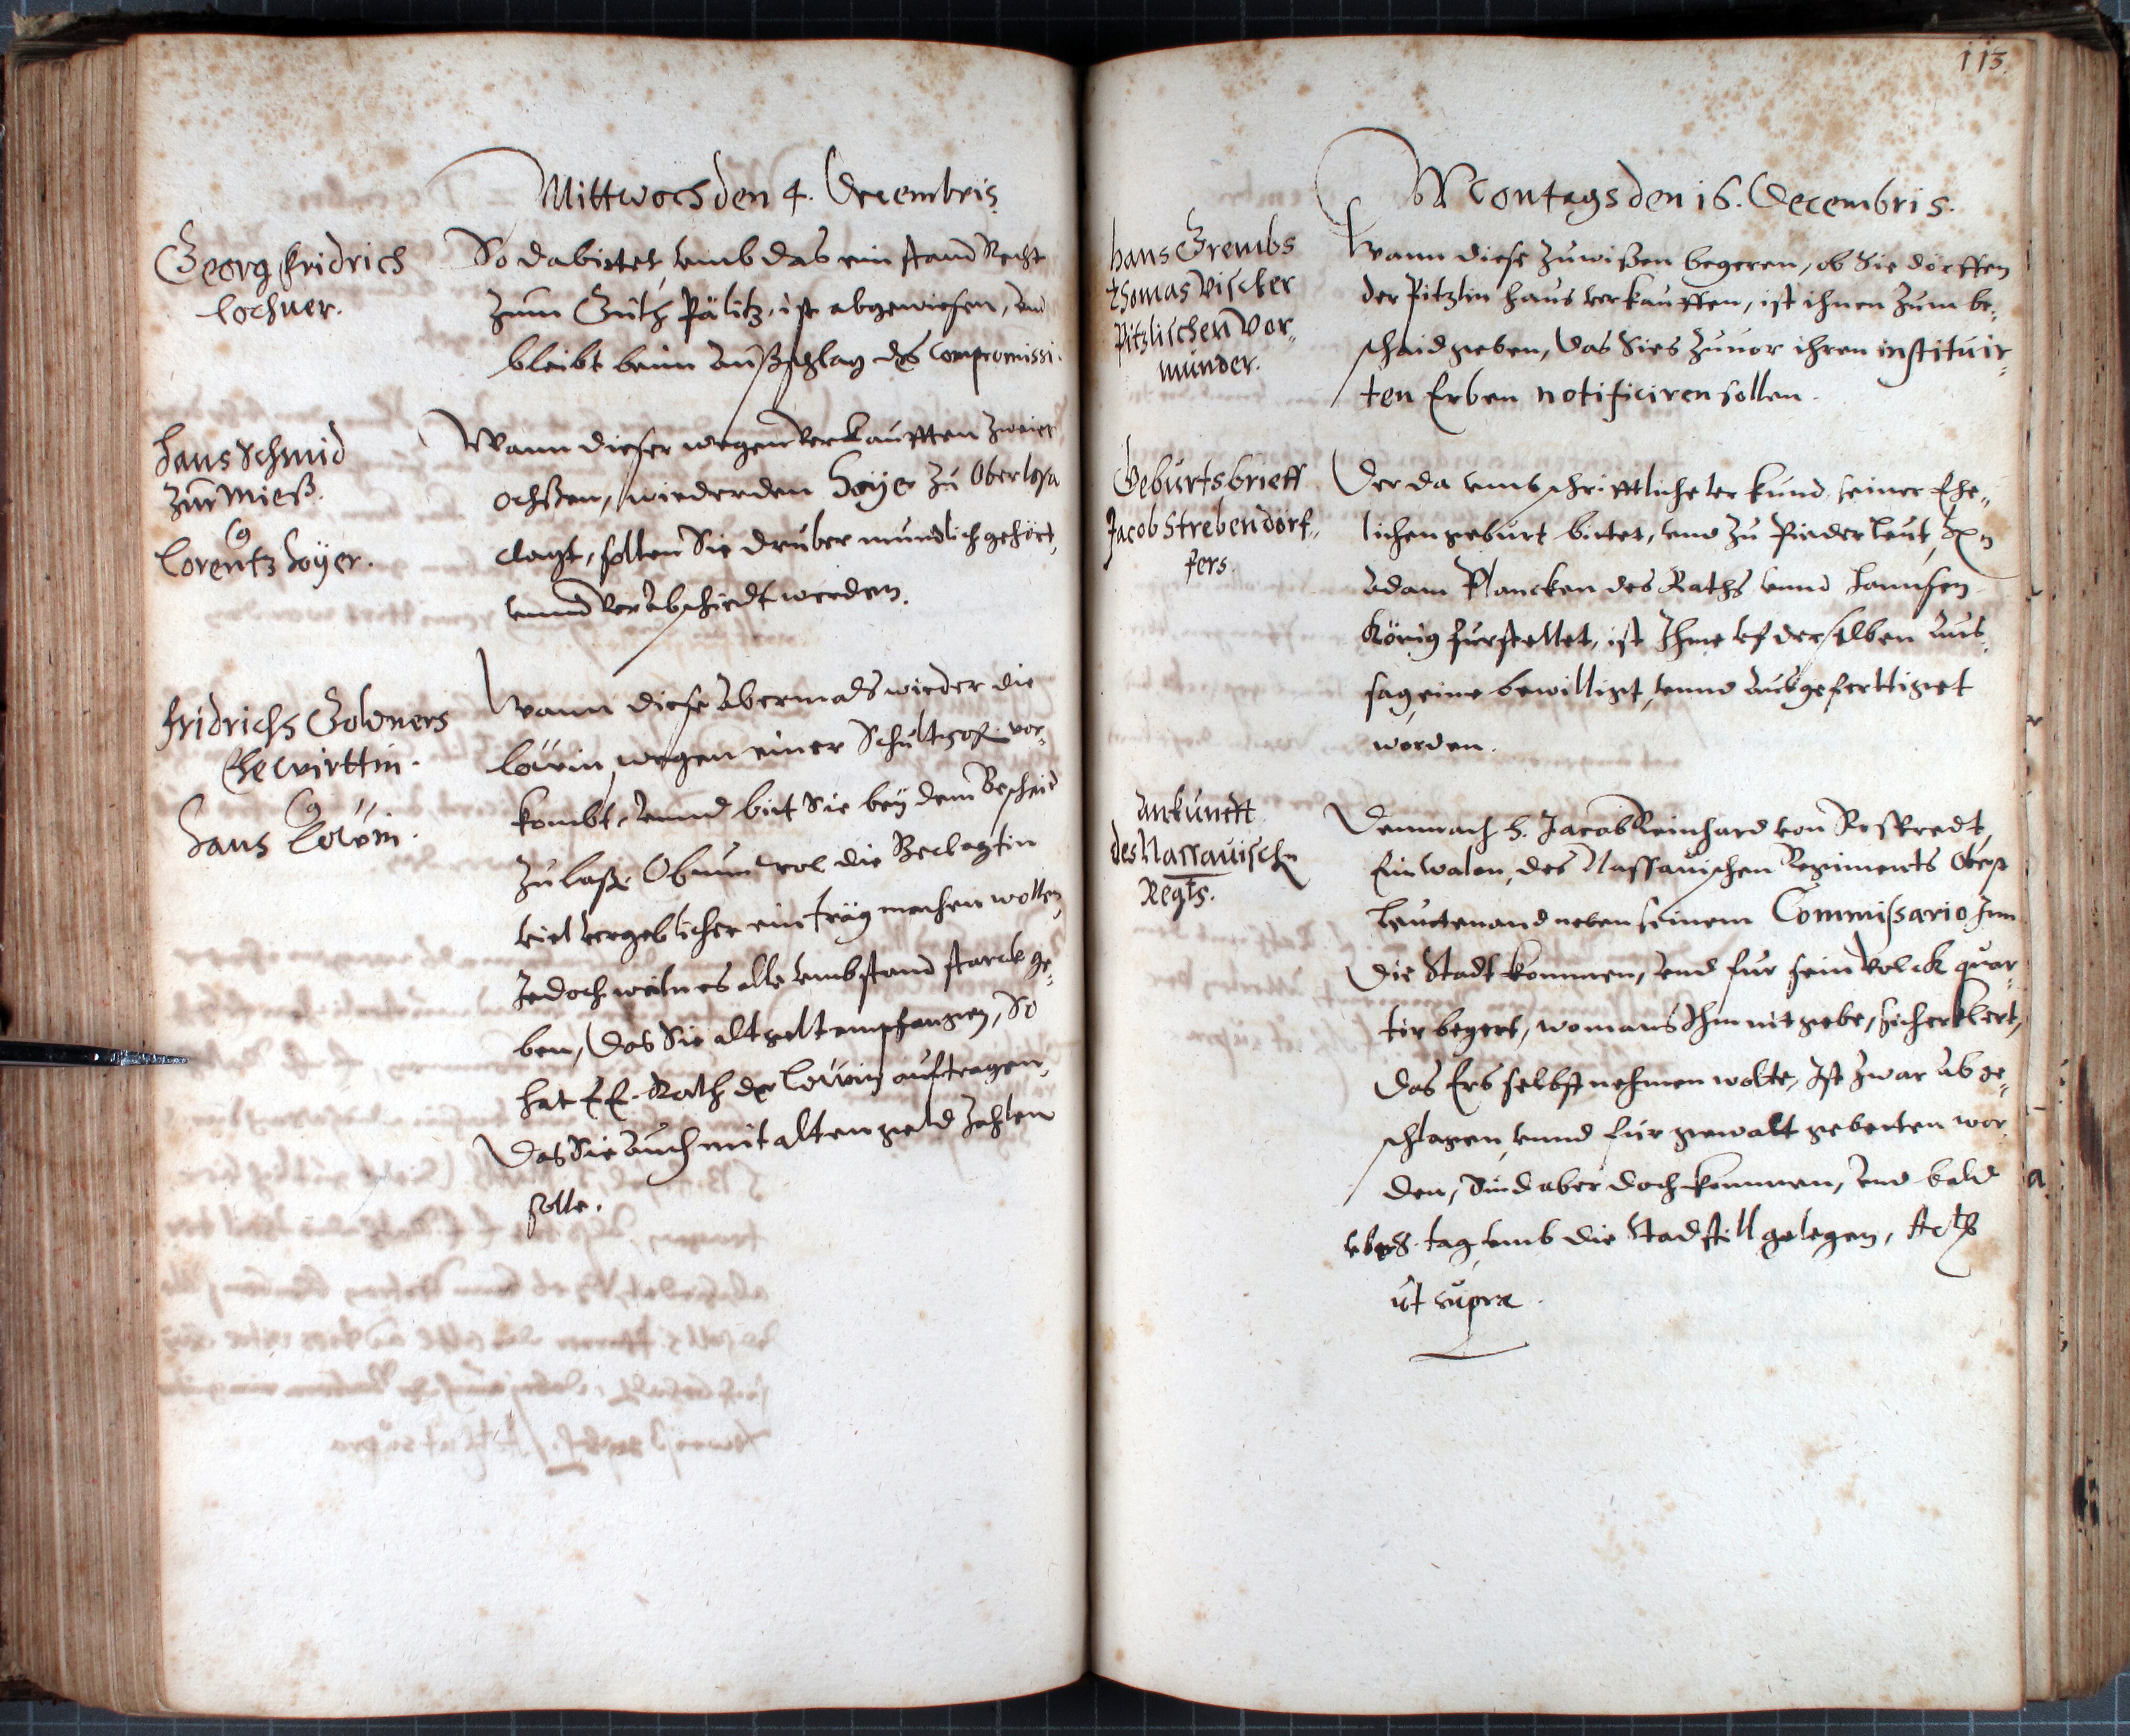 Mittwoch den 4. Decembris
Georg Fridrich
Lochner.
So da bittet umb das einstand Recht
zum Guth Pälitz, ist abgewiesen, und
bleibt beim Außschlag des Compromissi.
Hans Schmid
zur Mieß.
Ca
Lorentz Höyer.
Wann dieser wegen verkaufften zweier
ochßen, wieder den Höyer zu Oberlosa
clagt, sollen Sie drüber mundlich gehört,
unnd verabschiedt werden.
Fridrichs Goldners
Ehewirttin.
Ca
Hans Löwin.
Wann diese abermals wieder die
Löwin wegen einer Schultpost vor-
kombt, unnd bitt Sie bey dem Beschaid
zu laßen. Ob nun wol die Beclagtin
viel vergeblicher einträg machen wollen,
Jedoch weiln es alle umbstand starck ge-
ben, das Sie alt gelt empfangen, So
hat E E. Rath der Löwin auftragen,
Das Sie auch mit alten geld Zahlen
solle.
113.
Montags den 16. Decembris.
Hans Grembs
Thomas Vischer
Pitzlischen Vor-
münder.
Wann diese zuwißen begeren, ob Sie dörfften
der Pitzlin haus verkaufften, ist ihnen zum be-
schaid geben, das Sies zuvor ihren instituir-
ten Erben notificiren sollen.
Geburtsbrieff
Jacob Strebendörf-
fers.
Der da umb schrifftliche urkund seiner Ehe-
lichen geburt bittet, und zu
Adam Plancken des Raths unnd Hannsen
König furstellet, ist Ihme uf derselben Aus-
sag eine bewilligt, unnd ausgeferttiget
worden.
Ankunfft
des Nassauischn
Regts.
Demnach H. Jacob Reinhard von
Ein Walon, des Nassauischen Regiments Obrist
Leuttenand neben seinem Commissario Inn
die Stadt kommen, und fur sein Volck quar-
tir begert, wo mans Ihm nit gebe, sich erklert,
das Ers selbst nehmen wolte, Ist zwar abge-
schlagen, unnd fur gewalt gebetten wor-
den, Sind aber doch kommen, und bald
uber 8. tag umb die Stad still gelegen, Acts
ut supra.